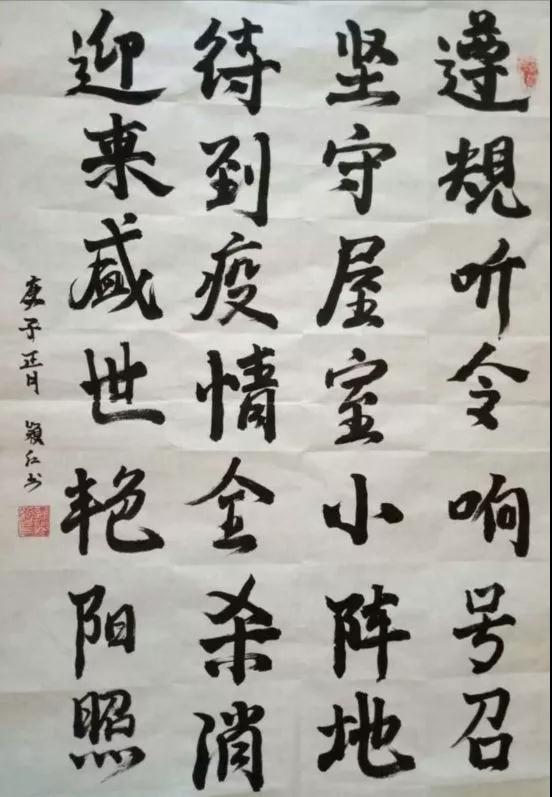 遵规听令响号召
坚守屋室小阵地
待到疫情全杀消
迎来盛世艳阳照
庚子正月 颖红书